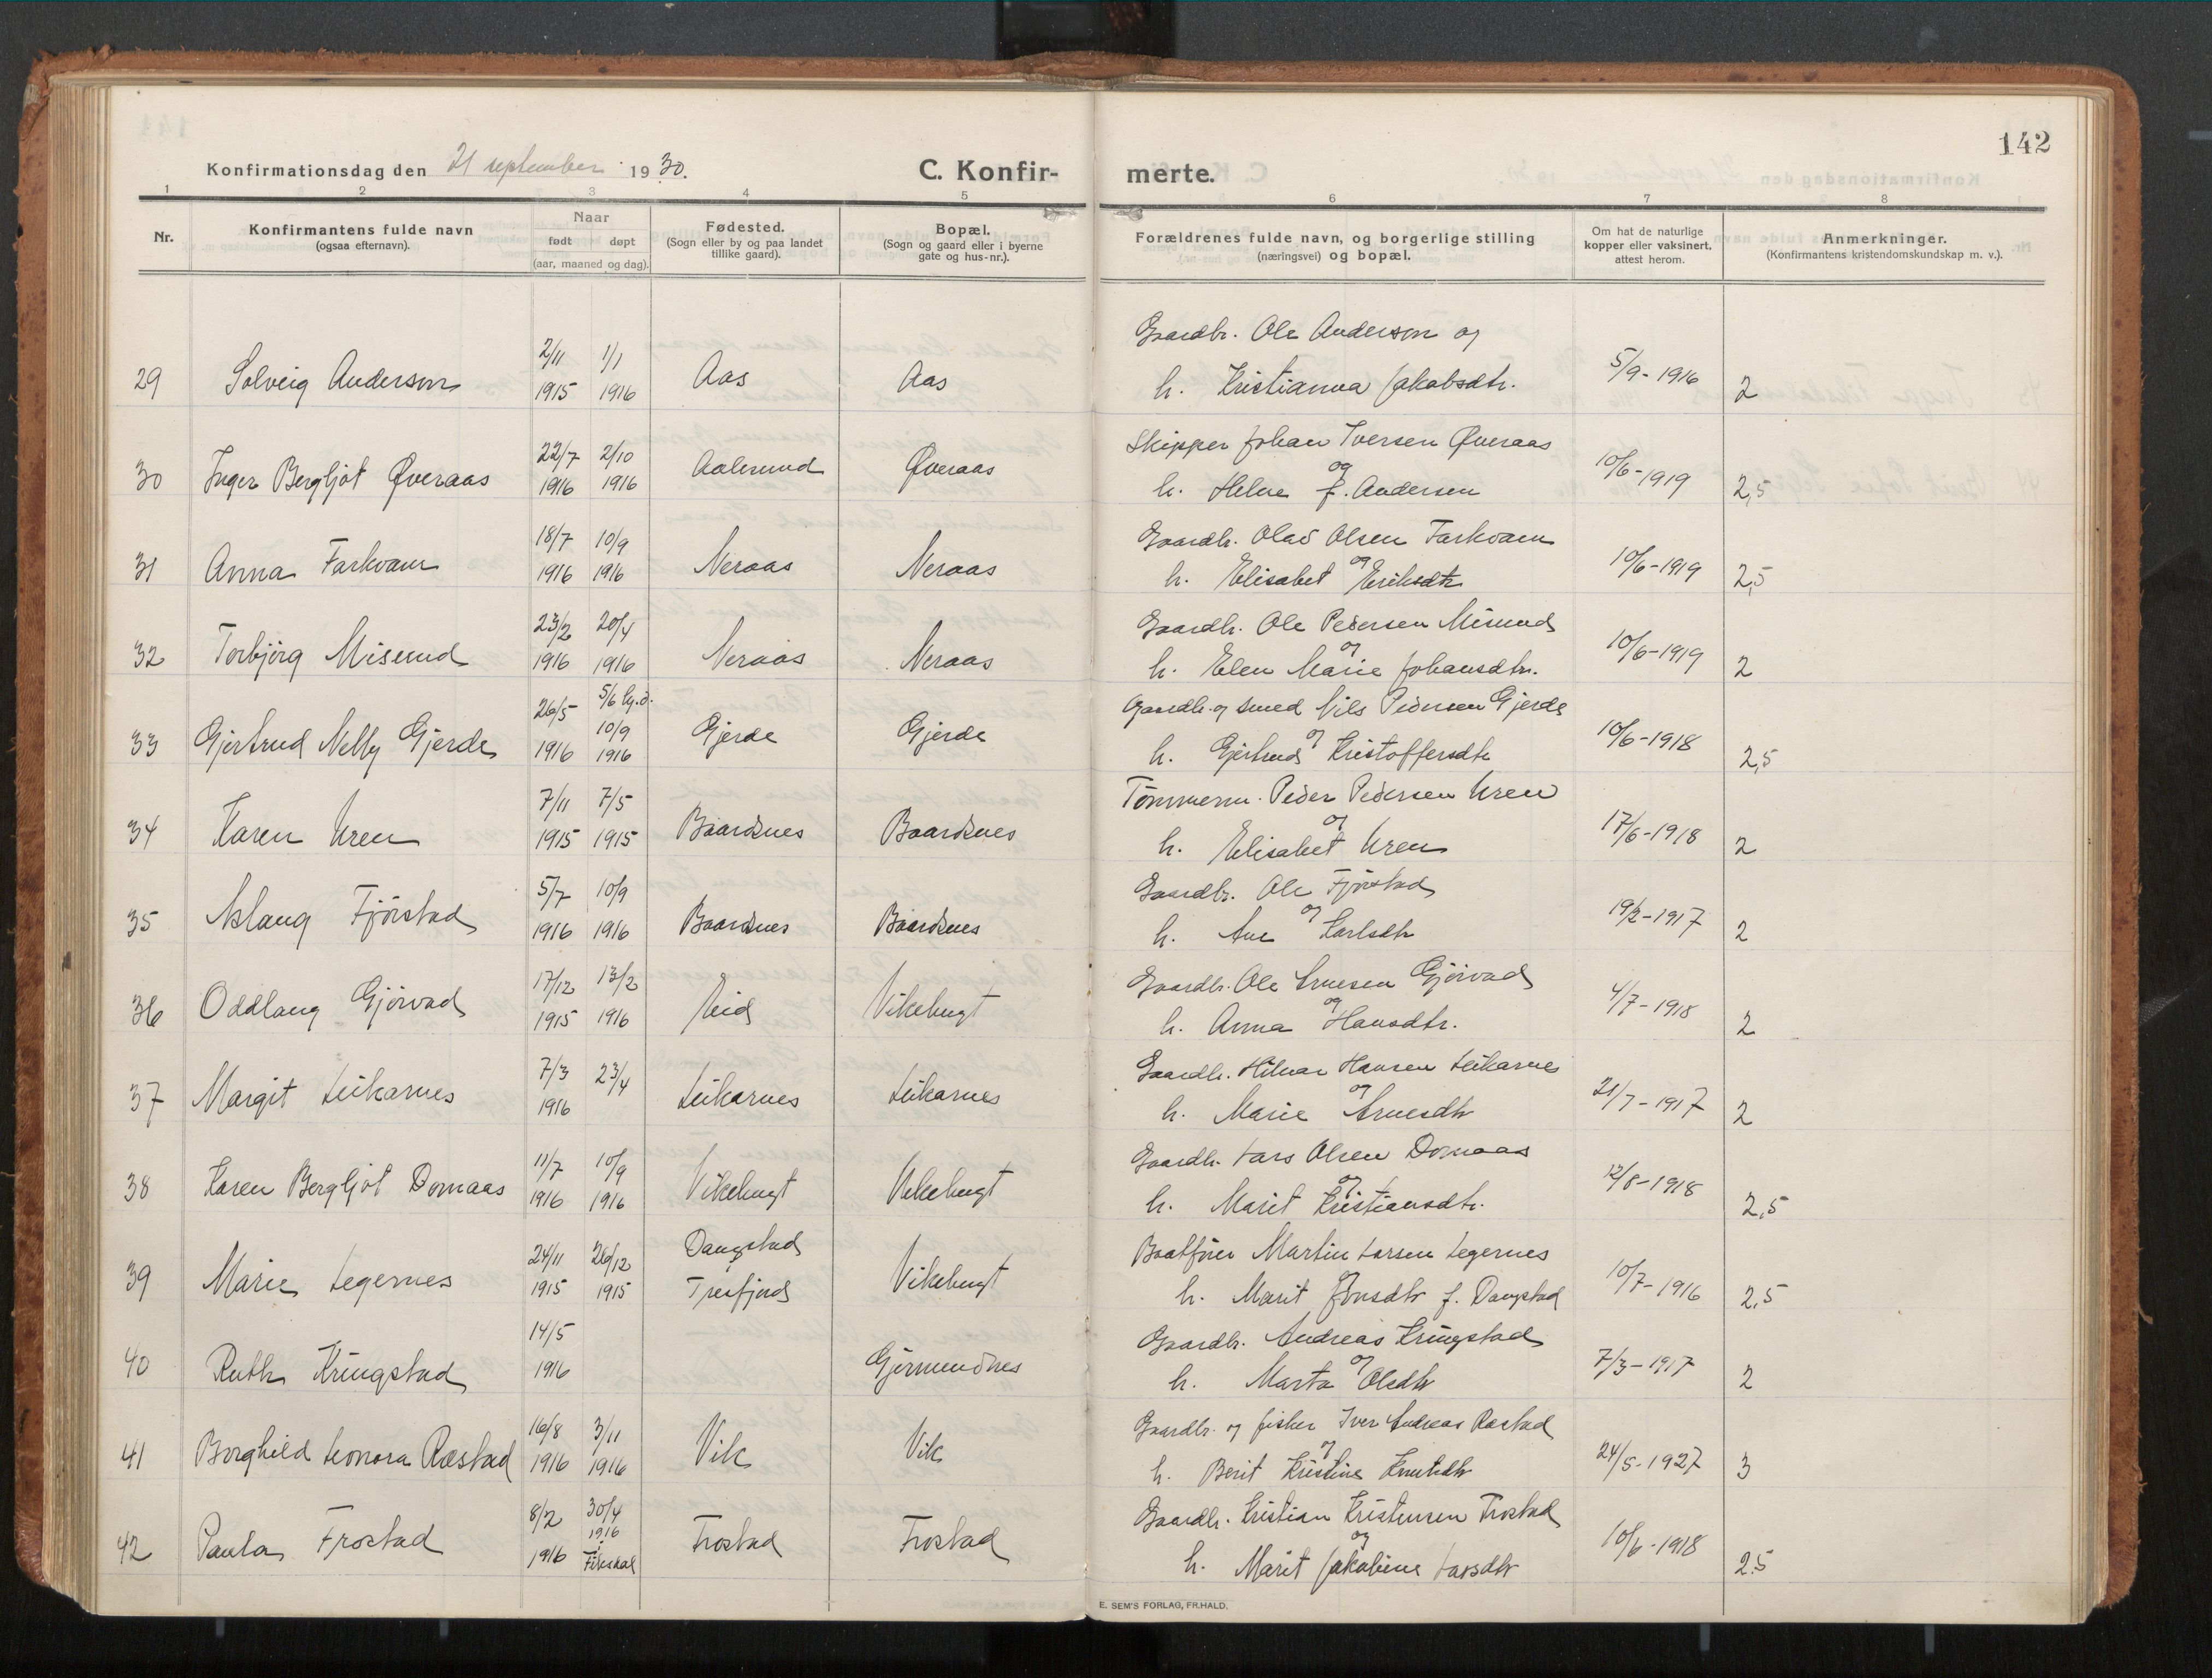 142
Konfirmationsdag den 21 september 1930.
C. Konfirmerte.
1 2 3 4 5 6 7 8
Nr.
Konfirmantens fulde navn
(ogsaa efternavn).
Naar
født døpt
(aar, maaned og dag).
Fødested.
(Sogn eller by og paa landet
tillike gaard).
Bopæl.
(Sogn og gaard eller i byerne
gate og hus-nr.).
Forældrenes fulde navn, og borgerlige stilling
(næringsvei) og bopæl.
Om hat de naturlige
kopper eller vaksinert,
attest herom.
Anmerkninger.
(Konfirmantens kristendomskundskap m. v.).
Gaardbr. Ole Anderson og
2/11 1/1
29 Solveig Anderson 1915 1916 Aas Aas h. Kristianna Jakobsdtr. 5/9-1916 2
22/7 2/10 Skipper Johan Iversen Øveraas
30 Inger Bergljot Øveraas 1916 1916 Aalesund Øveraas og h. Helne f. Andersen 10/6-1919 2,5
18/7 10/9 Gaardbr. Olav Olsen Farkvam
31 Anna Farkvam 1916 1916 Neraas Neraas h. Elisabet og Eriksdtr 10/6-1919 2,5
23/2 20/4 Gaardbr. Ole Pedersen Misund
32 Torbjørg Misund 1916 1916 Neraas Neraas og h. Elen Marie Johansdtr. 10/6-1919 2
26/5 5/6 hj.d. Gaardbr. og smed Nils Pedersen Gjerde
10/9
33 Gjertrud Nelly Gjerde 1916 1916 Gjerde Gjerde h. Gjertrud og Kristoffersdtr 10/6-1918 2,5
7/11 7/5 Tømmerm. Peder Pedersen Uren
34 Karen Uren 1915 1915 Baardsnes Baardsnes og h. Elisabet Uren 17/6-1918 2
5/7 10/9 Gaardbr. Ole Fjørstad
35 Aslaug Fjørstad 1916 1916 Baardsnes Baardsnes og h. Ane Karlsdtr 19/2-1917 2
17/12 13/2 Gaardbr. Ole Arnesen Gjørvad
36 Oddlaug Gjørvad 1915 1916 Eid Vikebugt og h. Anna Hansdtr. 4/7-1918 2
7/3 23/4 Gaardbr. Hilmar Hansen Leikarnes
37 Margit Leikarnes 1916 Leikarnes Leikarnes og h. Marie Arnesdtr 21/7-1917 2
11/7 10/9 Gaardbr. Lars Olsen Domaas
38 Karen Bergljot Domaas 1916 1916 Vikebugt Vikebugt og h. Marit Kristiansdtr. 12/8-1918 2,5
24/11 26/12 Daugstad Baatfører Martin Larsen Legernes
39 Marie Legernes 1915 1915 Tresfjord Vikebugt og h. Marit Jonsdtr f. Daugstad 10/7-1916 2,5
14/5 Gaardbr. Andreas Kringstad
40 Ruth Kringstad 1916 Gjermundnes og h. Marta Olsdtr 7/3-1917 2
16/8 3/11 Gaardbr. og fisker Iver Andreas Røstad
41 Borghild Leonora Røstad 1916 1916 Vik Vik og h. Berit Kristine Knutsdtr 24/5-1927 3
8/2 30/4 1916 Gaardbr. Kristian Kristensen Frostad
42 Paula Frostad 1916 i Fiksdal Frostad Frostad og h. Marit Jakobine Larsdtr 10/6-1918 2.5
E. SEM'S FORLAG, FR.HALD.